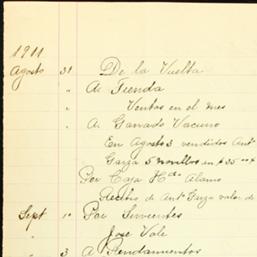 1911
Agosto 31 De la Vuelta
" A Tienda
" Ventas en el mes
" A Ganado Vacuno
En Agosto 3 vendidos Ant°
Garza 5 novillos en $35.00
Por Caja Hda Alamo
Recibo de Ant° Garza valor de
Sept 1° Por Sirvientes
" Jose Vale
3 A Rendamientos